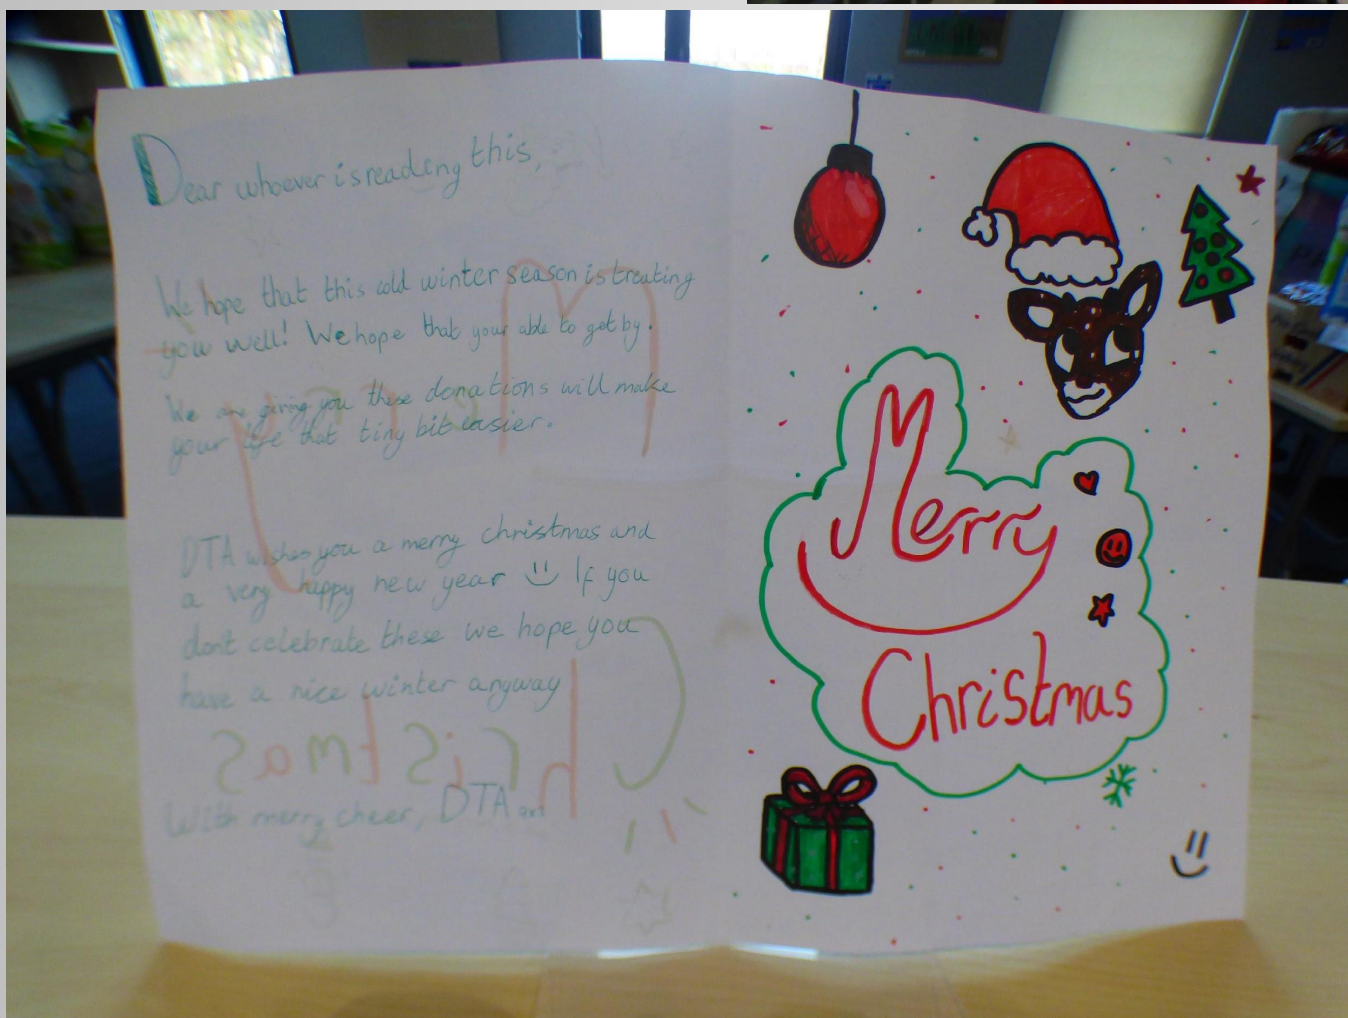 Dear whoever is reading this,
We hope that this cold winter season is treating
you well! We hope that your able to get by.
We are giving you these donations will make
your life that tiny bit easier.
DTA wishes you a merry christmas and
a very happy new year If you
don't celebrate these we hope you
have a nice winter anyway
With merry cheer, DTA
Merry
Christmas